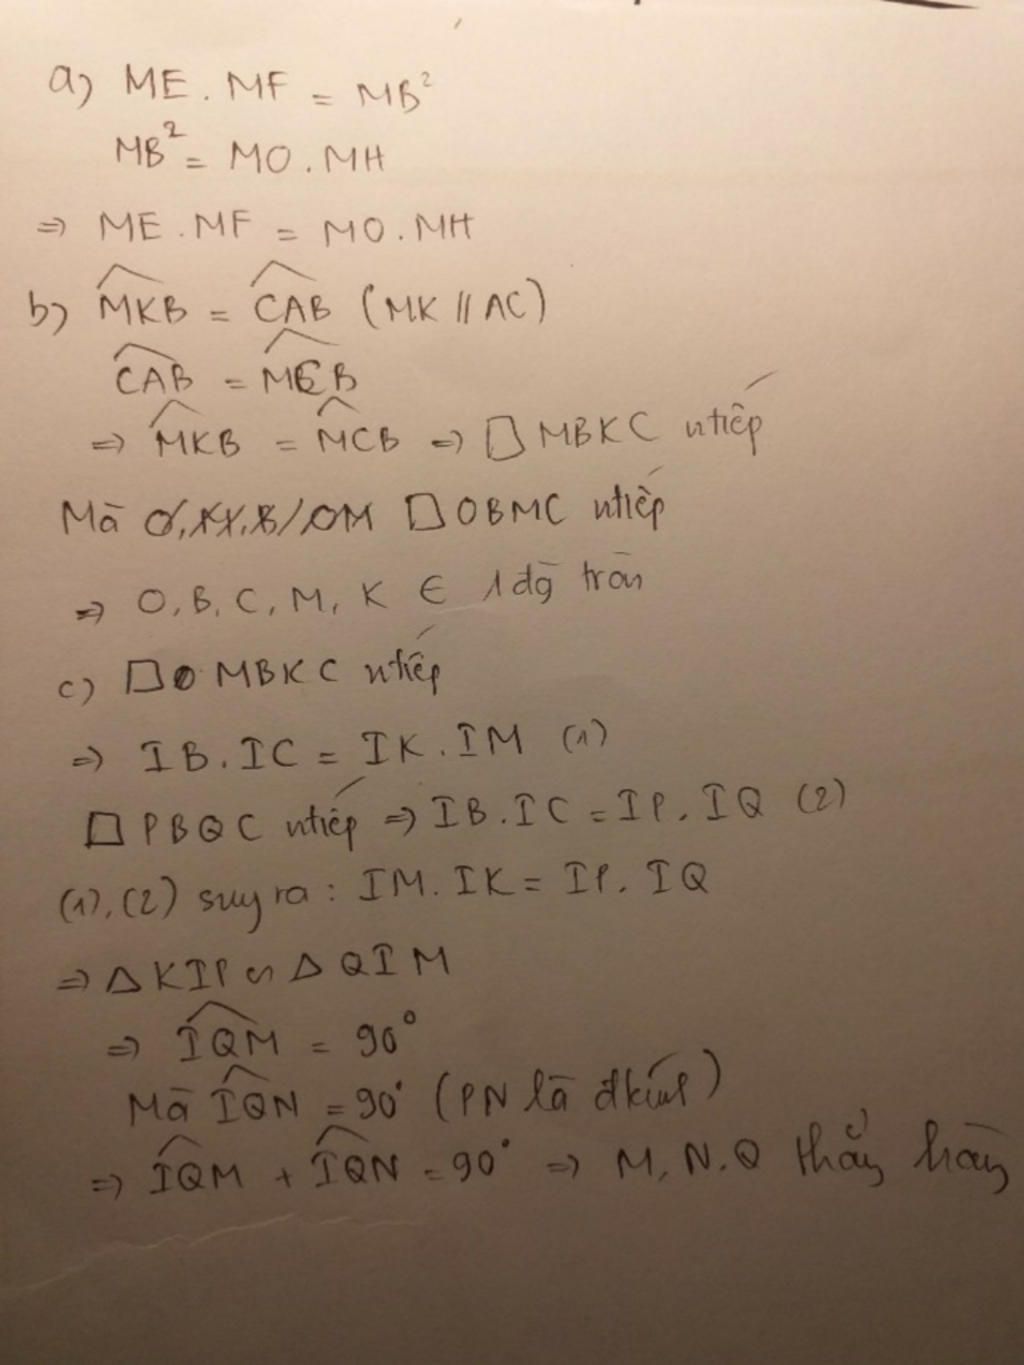 a) ME . MF = MB²
MB² = MO . MH
⇒ ME . MF = MO . MH
b) \widehat{MKB} = \widehat{CAB} (MK // AC)
\widehat{CAB} = \widehat{MCB}
⇒ \widehat{MKB} = \widehat{MCB} ⇒ □ MBKC ntiếp
Mà □ OBMC ntiếp
⇒ O, B, C, M, K ∈ 1 đg tròn
c) □ MBKC ntiếp
⇒ IB . IC = IK . IM (1)
□ PBQC ntiếp ⇒ IB . IC = IP . IQ (2)
(1), (2) suy ra : IM . IK = IP . IQ
⇒ Δ KIP ∽ Δ QIM
⇒ \widehat{IQM} = 90°
Mà \widehat{IQN} = 90° (PN là đkính)
⇒ \widehat{IQM} + \widehat{IQN} = 90° ⇒ M, N, Q thẳg hàng